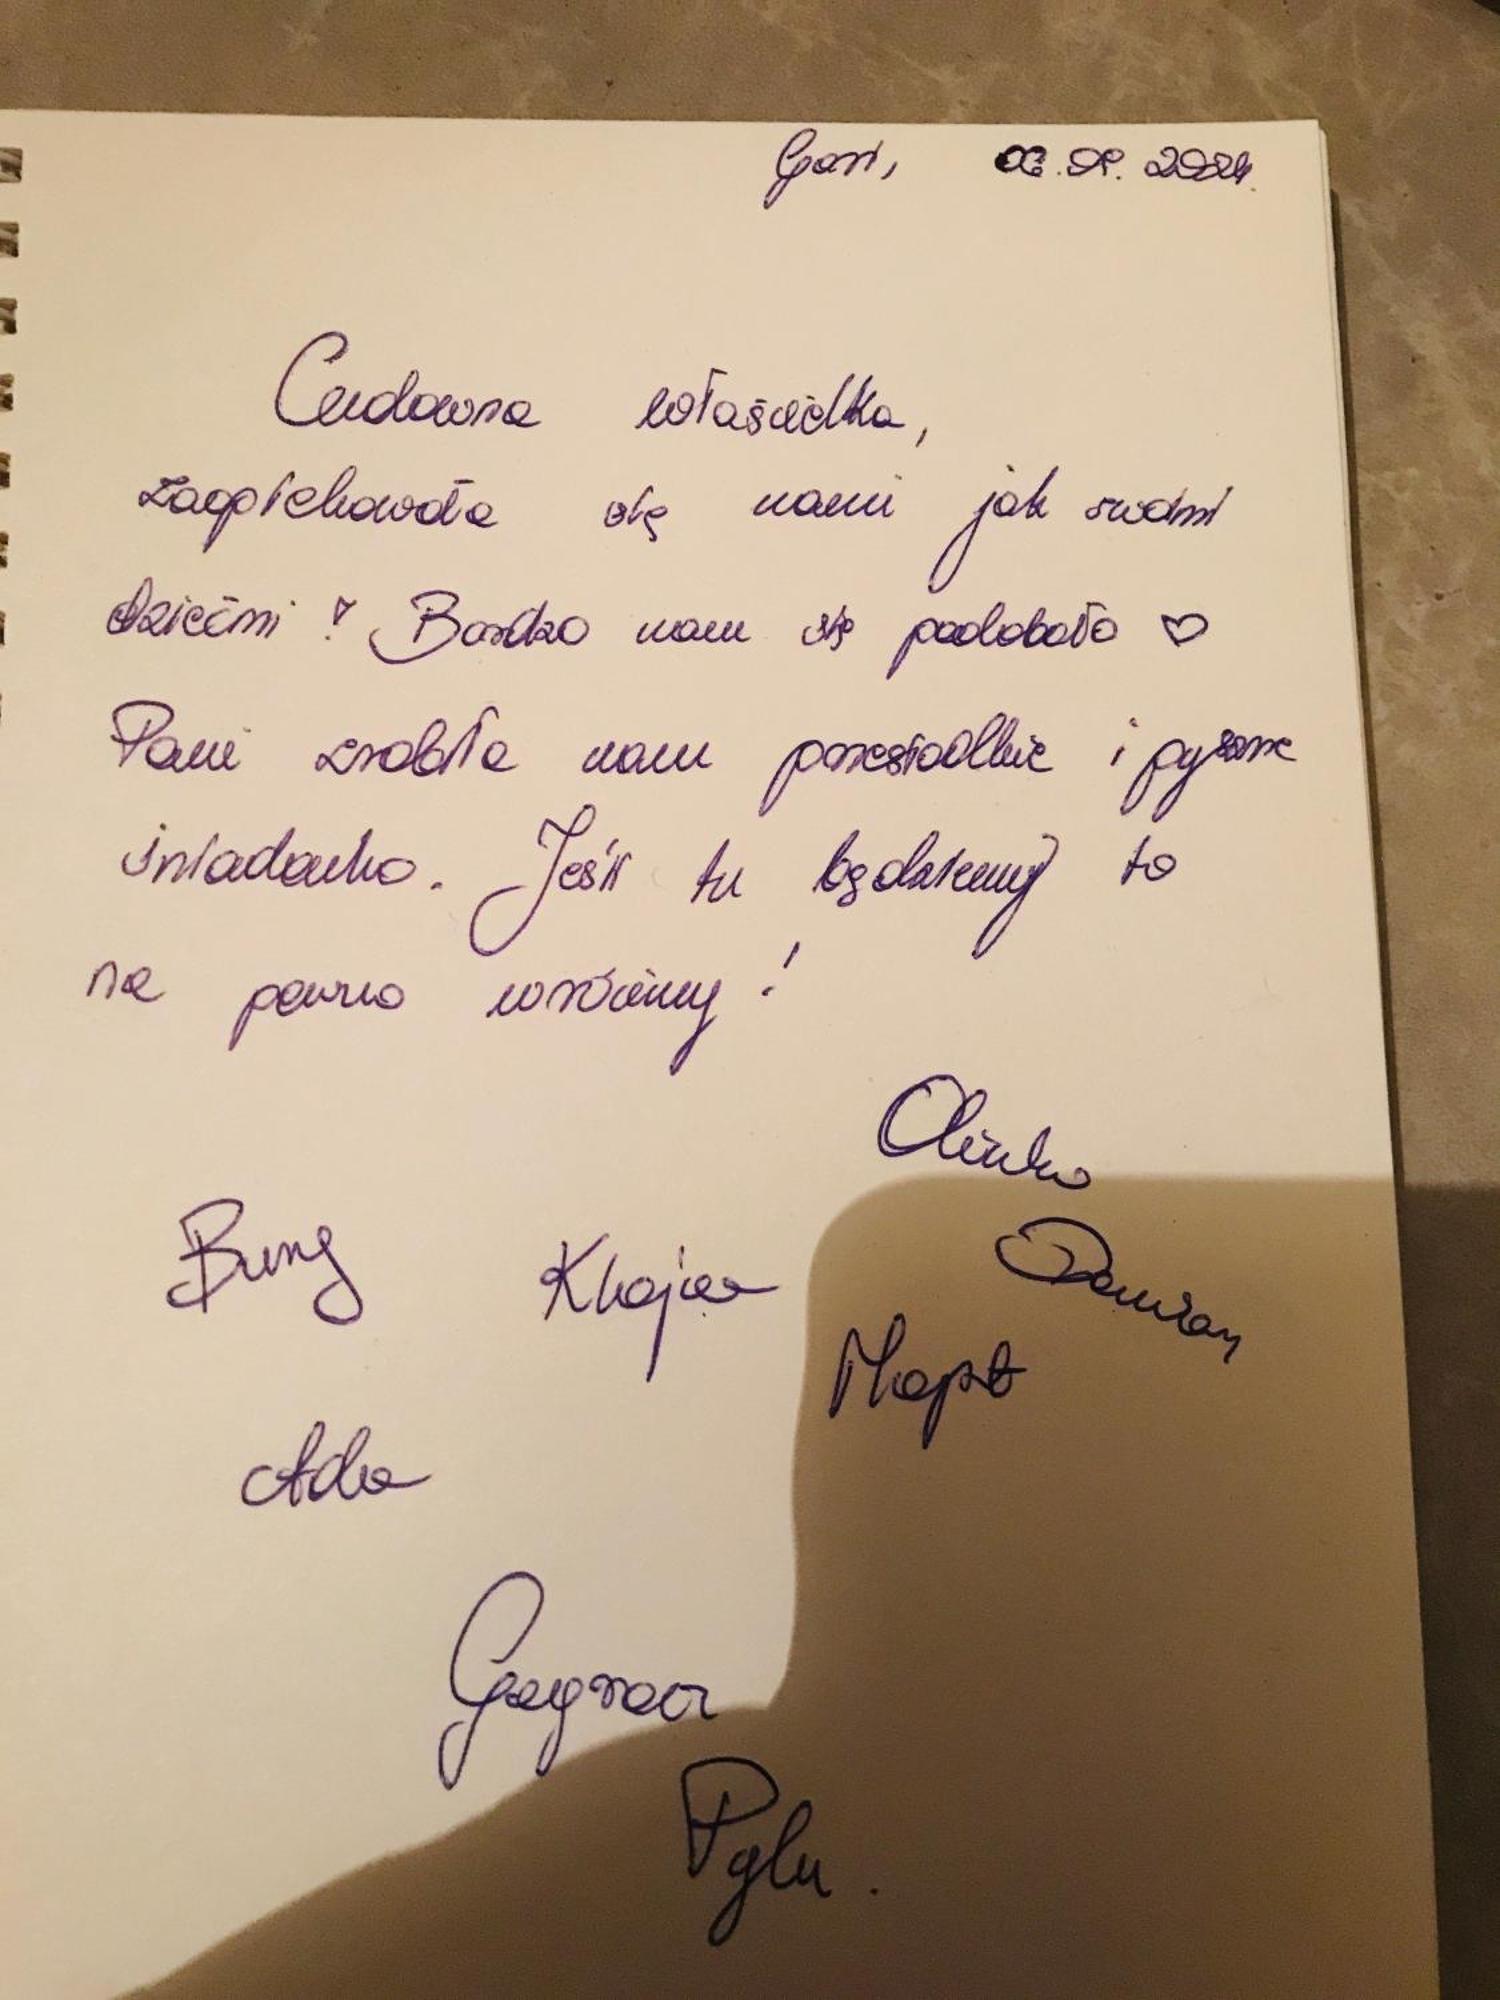 Gori, 06.09.2024.
Cudowna właścicielka,
zaopiekowała się nami jak swoimi
dziećmi! Bardzo nam się podobało ♡
Pani zrobiła nam prześcieradło i pyszne
śniadanko. Jeśli tu będziemy to
na pewno wrócimy!
Olinka
Bung Khajaa Damian
Mapt
Ada
Gagnoci
Pglu.